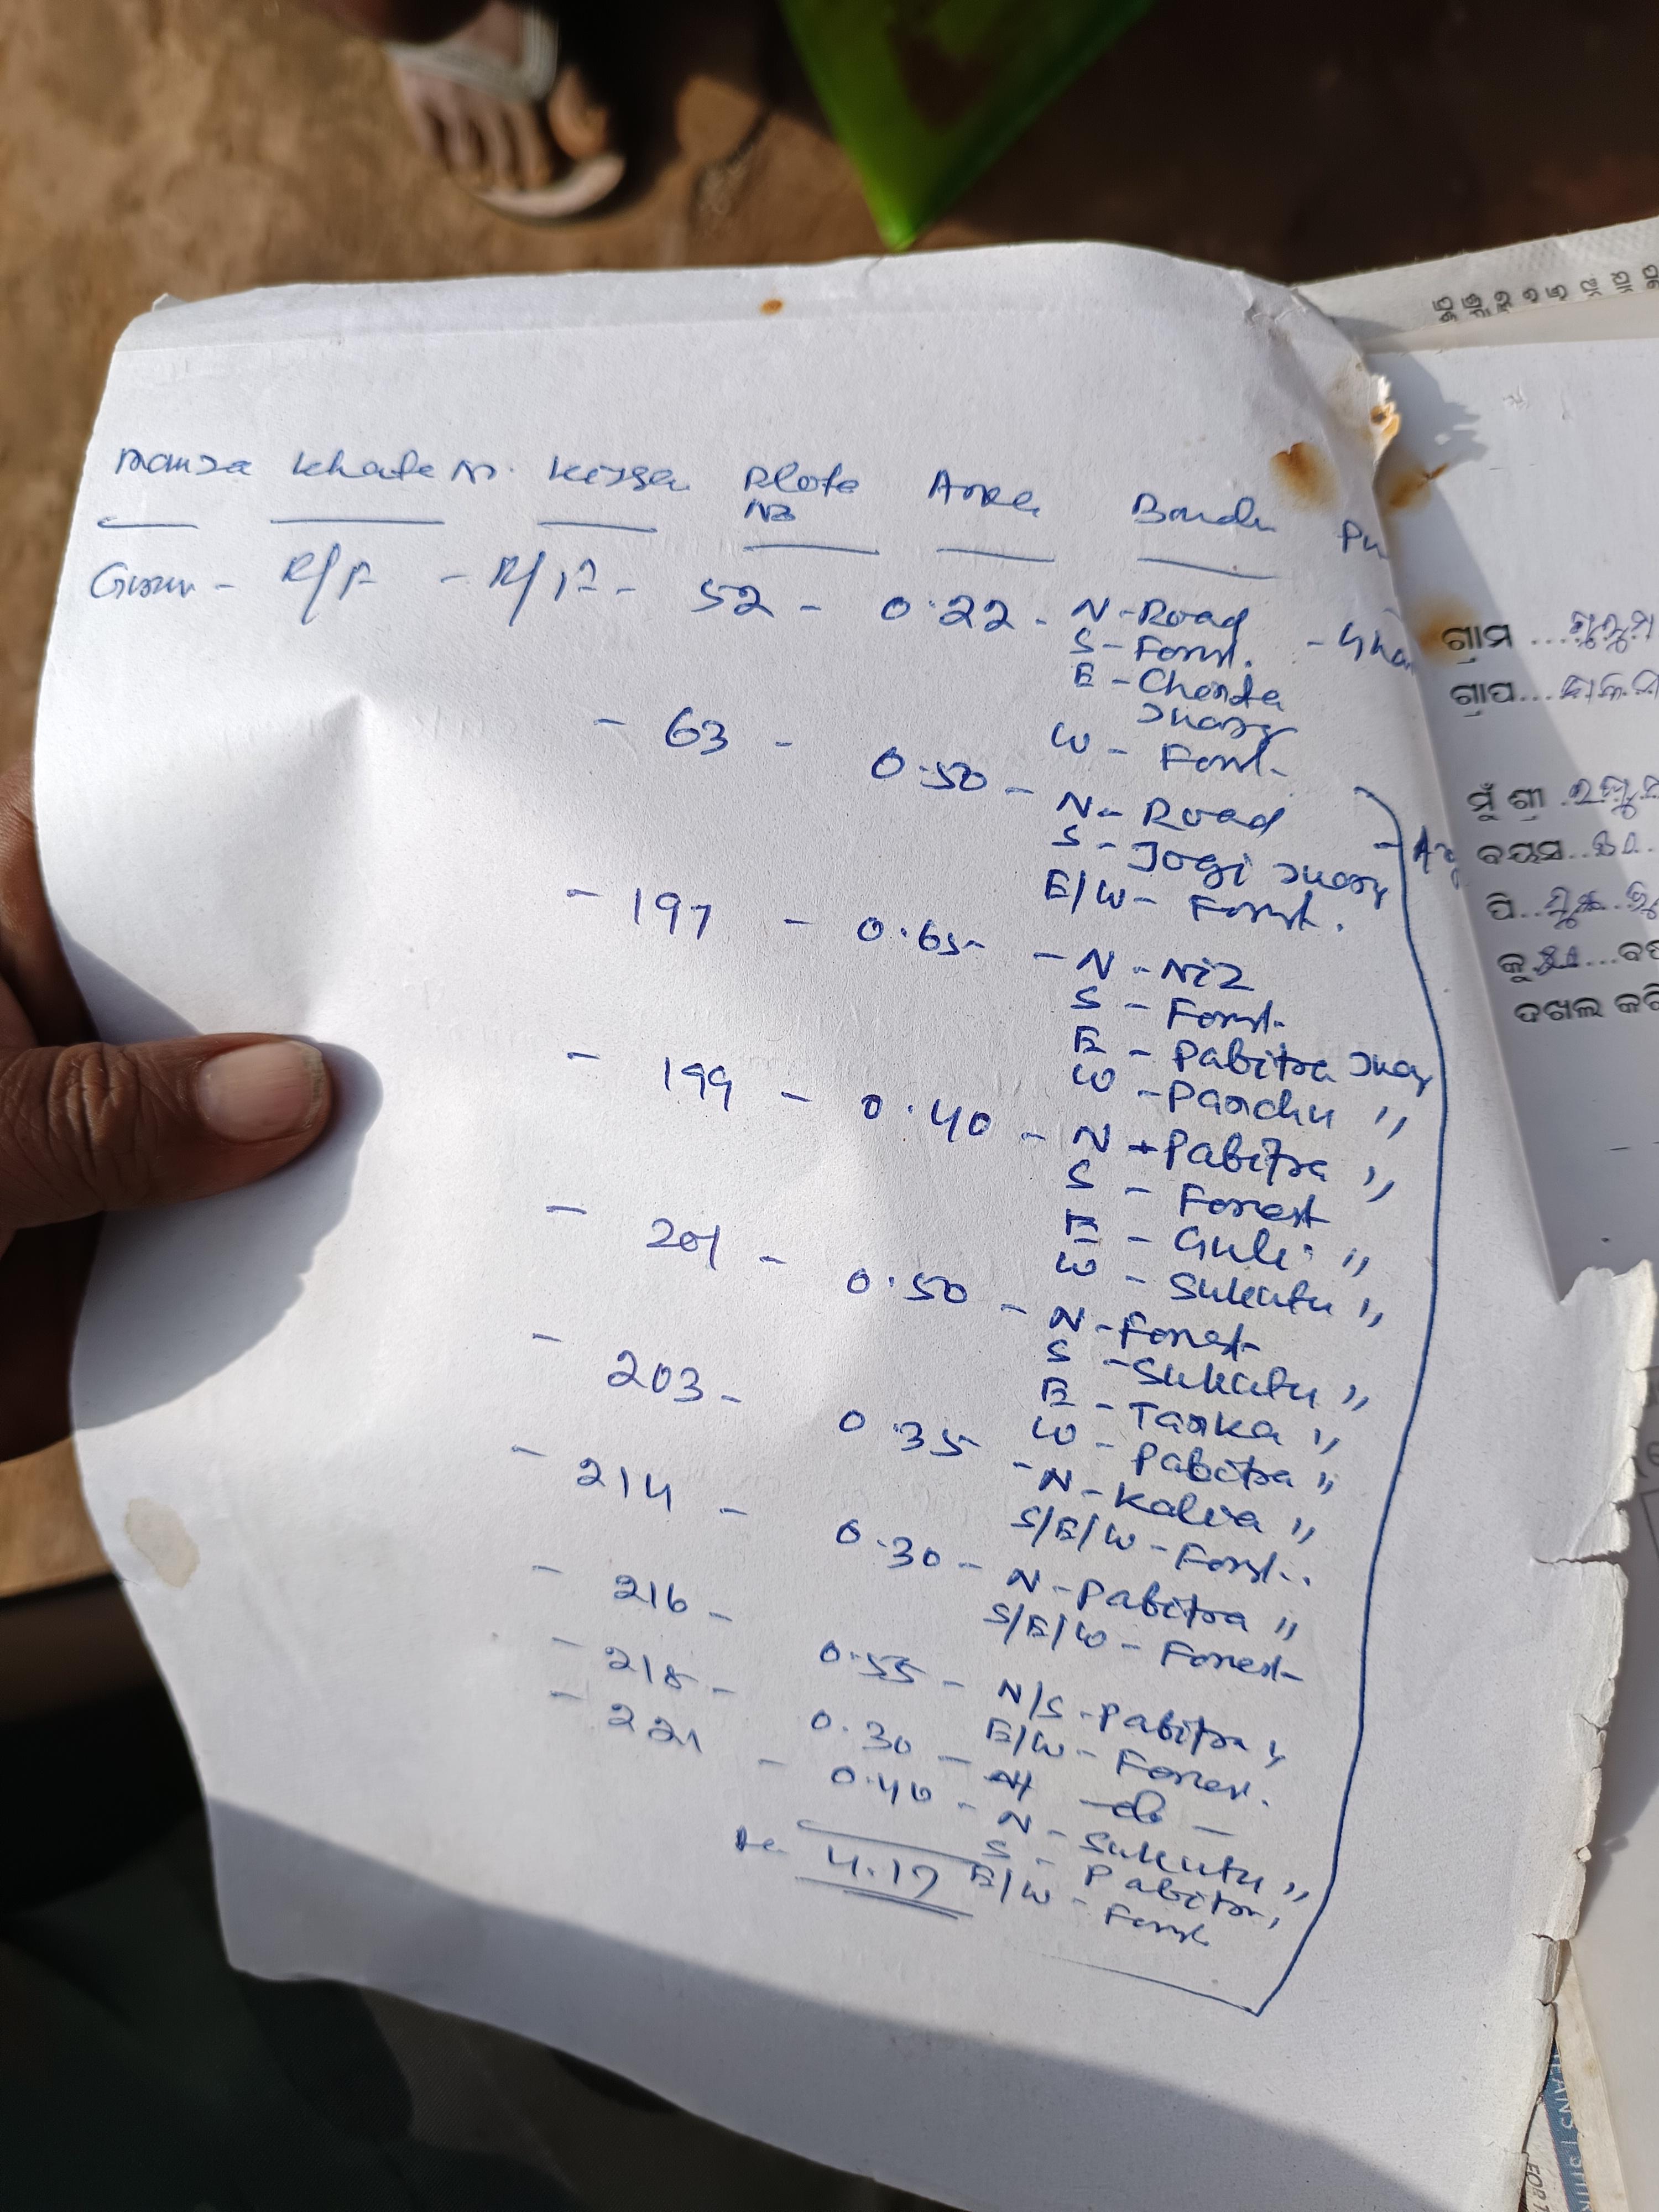 Mouza Khata No. Kissa Plote No Area Bounda Pu
R/F - R/F - 52 - 0.22 - N - Road
S - Forest.
E - Chanda
Juang
W - Forest.
- 63 - 0.50 - N - Road
S - Jogi Juang
E/W - Forest.
- 197 - 0.65 - N - Niz
S - Forest.
E - Pabitra Juang
W - Panchu "
- 199 - 0.40 - N - Pabitra "
S - Forrest
E - Guli "
W - Sukutu "
- 201 - 0.50 - N - Forrest
S - Sukutu "
E - Tanka "
W - Pabitra "
- 203 - 0.35 - N - Kalia "
S/E/W - Forest.
- 214 - 0.30 - N - Pabitra "
S/E/W - Forrest
- 216 - 0.55 - N/S - Pabitra "
E/W - Forrest.
- 218 - 0.30 - do -
- 221 - 0.40 - N - Sukutu "
S - Pabitra "
E/W - Forest
4.17
ଗ୍ରାମ
ଗ୍ରାପ
ମୁଁ ଶ୍ରୀ
ବୟସ
ପି
କୁ
ଦଖଲ କରି